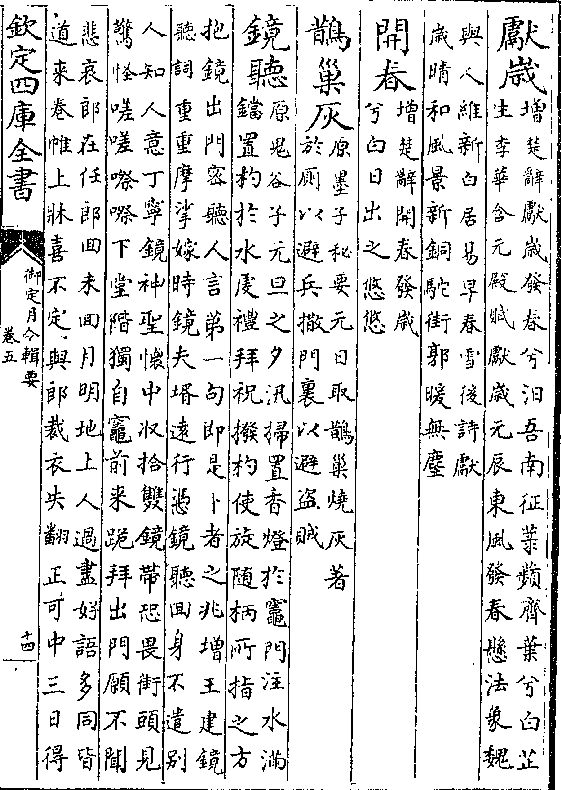 獻歲增楚辭獻歲發春兮汩吾南征菉蘋齊葉兮白芷
生李華含元殿賦獻歲元辰東風發春懸法象魏
與人維新白居易早春雪後詩獻
歲晴和風景新銅駝街郭暖無塵
開春增楚辭開春發歲
兮白日出之悠悠
鵲巢灰原墨子秘要元日取鵲巢燒灰著
於厠以避兵撒門裏以避盜賊
鏡聽原鬼谷子元旦之夕汛掃置香燈於竈門注水滿
鐺置杓於水虔禮拜祝撥杓使旋隨柄所指之方
抱鏡出門密聽人言第一句即是卜者之兆增王建鏡
聽詞重重摩挲嫁時鏡夫壻遠行憑鏡聽回身不遣别
人知人意丁寧鏡神聖懷中収拾雙鏡帶恐畏街頭見
驚怪嗟嗟嚓嚓下堂階獨自竈前来跪拜出門願不聞
悲哀郎在任郎回未回月明地上人過盡好語多同皆
道来卷帷上牀喜不定與郎裁衣失翻正可中三日得
欽定四庫全書
御定月令輯要
卷五
十四